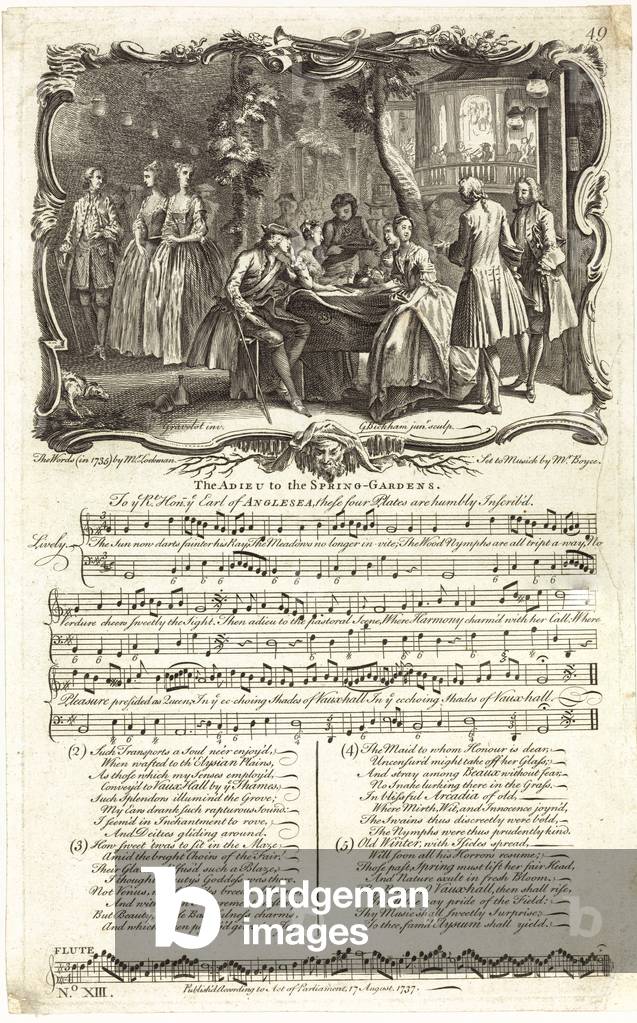 49
Gravelot inv.
G. Bickham junr. sculp.
The Words (in 1735) by Mr. Lockman.
Set to Musick by Mr. Boyce.
The ADIEU to the SPRING-GARDENS.
To ye Rt. Hon. ye Earl of ANGLESEA, these four Plates are humbly Inscrib'd.
Lively.
The Sun now darts fainter his Ray, The Meadows no longer in-vite; The Wood Nymphs are all tript a-way, No
Verdure cheers sweetly the Sight. Then adieu to the pastoral Scene, Where Harmony charm'd with her Call: Where
Pleasure presided as Queen, In ye ec-choing Shades of Vauxhall. In ye ecchoing Shades of Vauxhall.
(2) Such Transports a Soul ne'er enjoy'd,
When wafted to th' Elysian Plains,
As those which my Senses employ'd,
Convey'd to VAUX HALL by ye Thames,
Such Splendors illumin'd the Grove;
My Ears drank such rapturous Sound:
I seem'd in Inchantment to rove,
And Deities gliding around.
(3) How sweet 'twas to sit in the Maze
Amid the bright Choirs of the Fair!
Their Gla us'd such a Blaze,
I though utys Goddess was the
Not Venus,
And wit
But Beauty, charms,
And whic
(4) The Maid to whom Honour is dear,
Uncensur'd might take off her Glass;
And stray among BEAUX without fear,
No Snake lurking there in the Grass.
In blissful Arcadia of old,
Where Mirth, Wit, and Innocence joyn'd,
The Swains thus discreetly were bold,
The Nymphs were thus prudently kind.
(5) Old Winter, with Isicles spread,
Will soon all his Horrors resume;
Those past, Spring must lift her fair Head,
And Nature exult in fresh Bloom.
VAUXHALL, then shall rise,
pride of the Field:
Thy Music shall sweetly Surprise;
To thee, fam'd Elysium shall yield.
FLUTE
No. XIII.
Publish'd According to Act of Parliament, 17 August. 1737.
b bridgeman
images